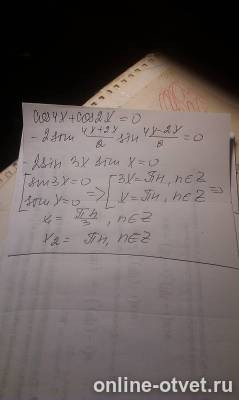 cos4x+cos2x=0
-2sin (4x+2x)/2 sin (4x-2x)/2 =0
-2sin 3x sin x=0
[sin3x=0 => [3x=πn, n∈Z =>
[sin x=0 [x=πn, n∈Z
x₁= πn/3, n∈Z
x₂= πn, n∈Z
online-otvet.ru